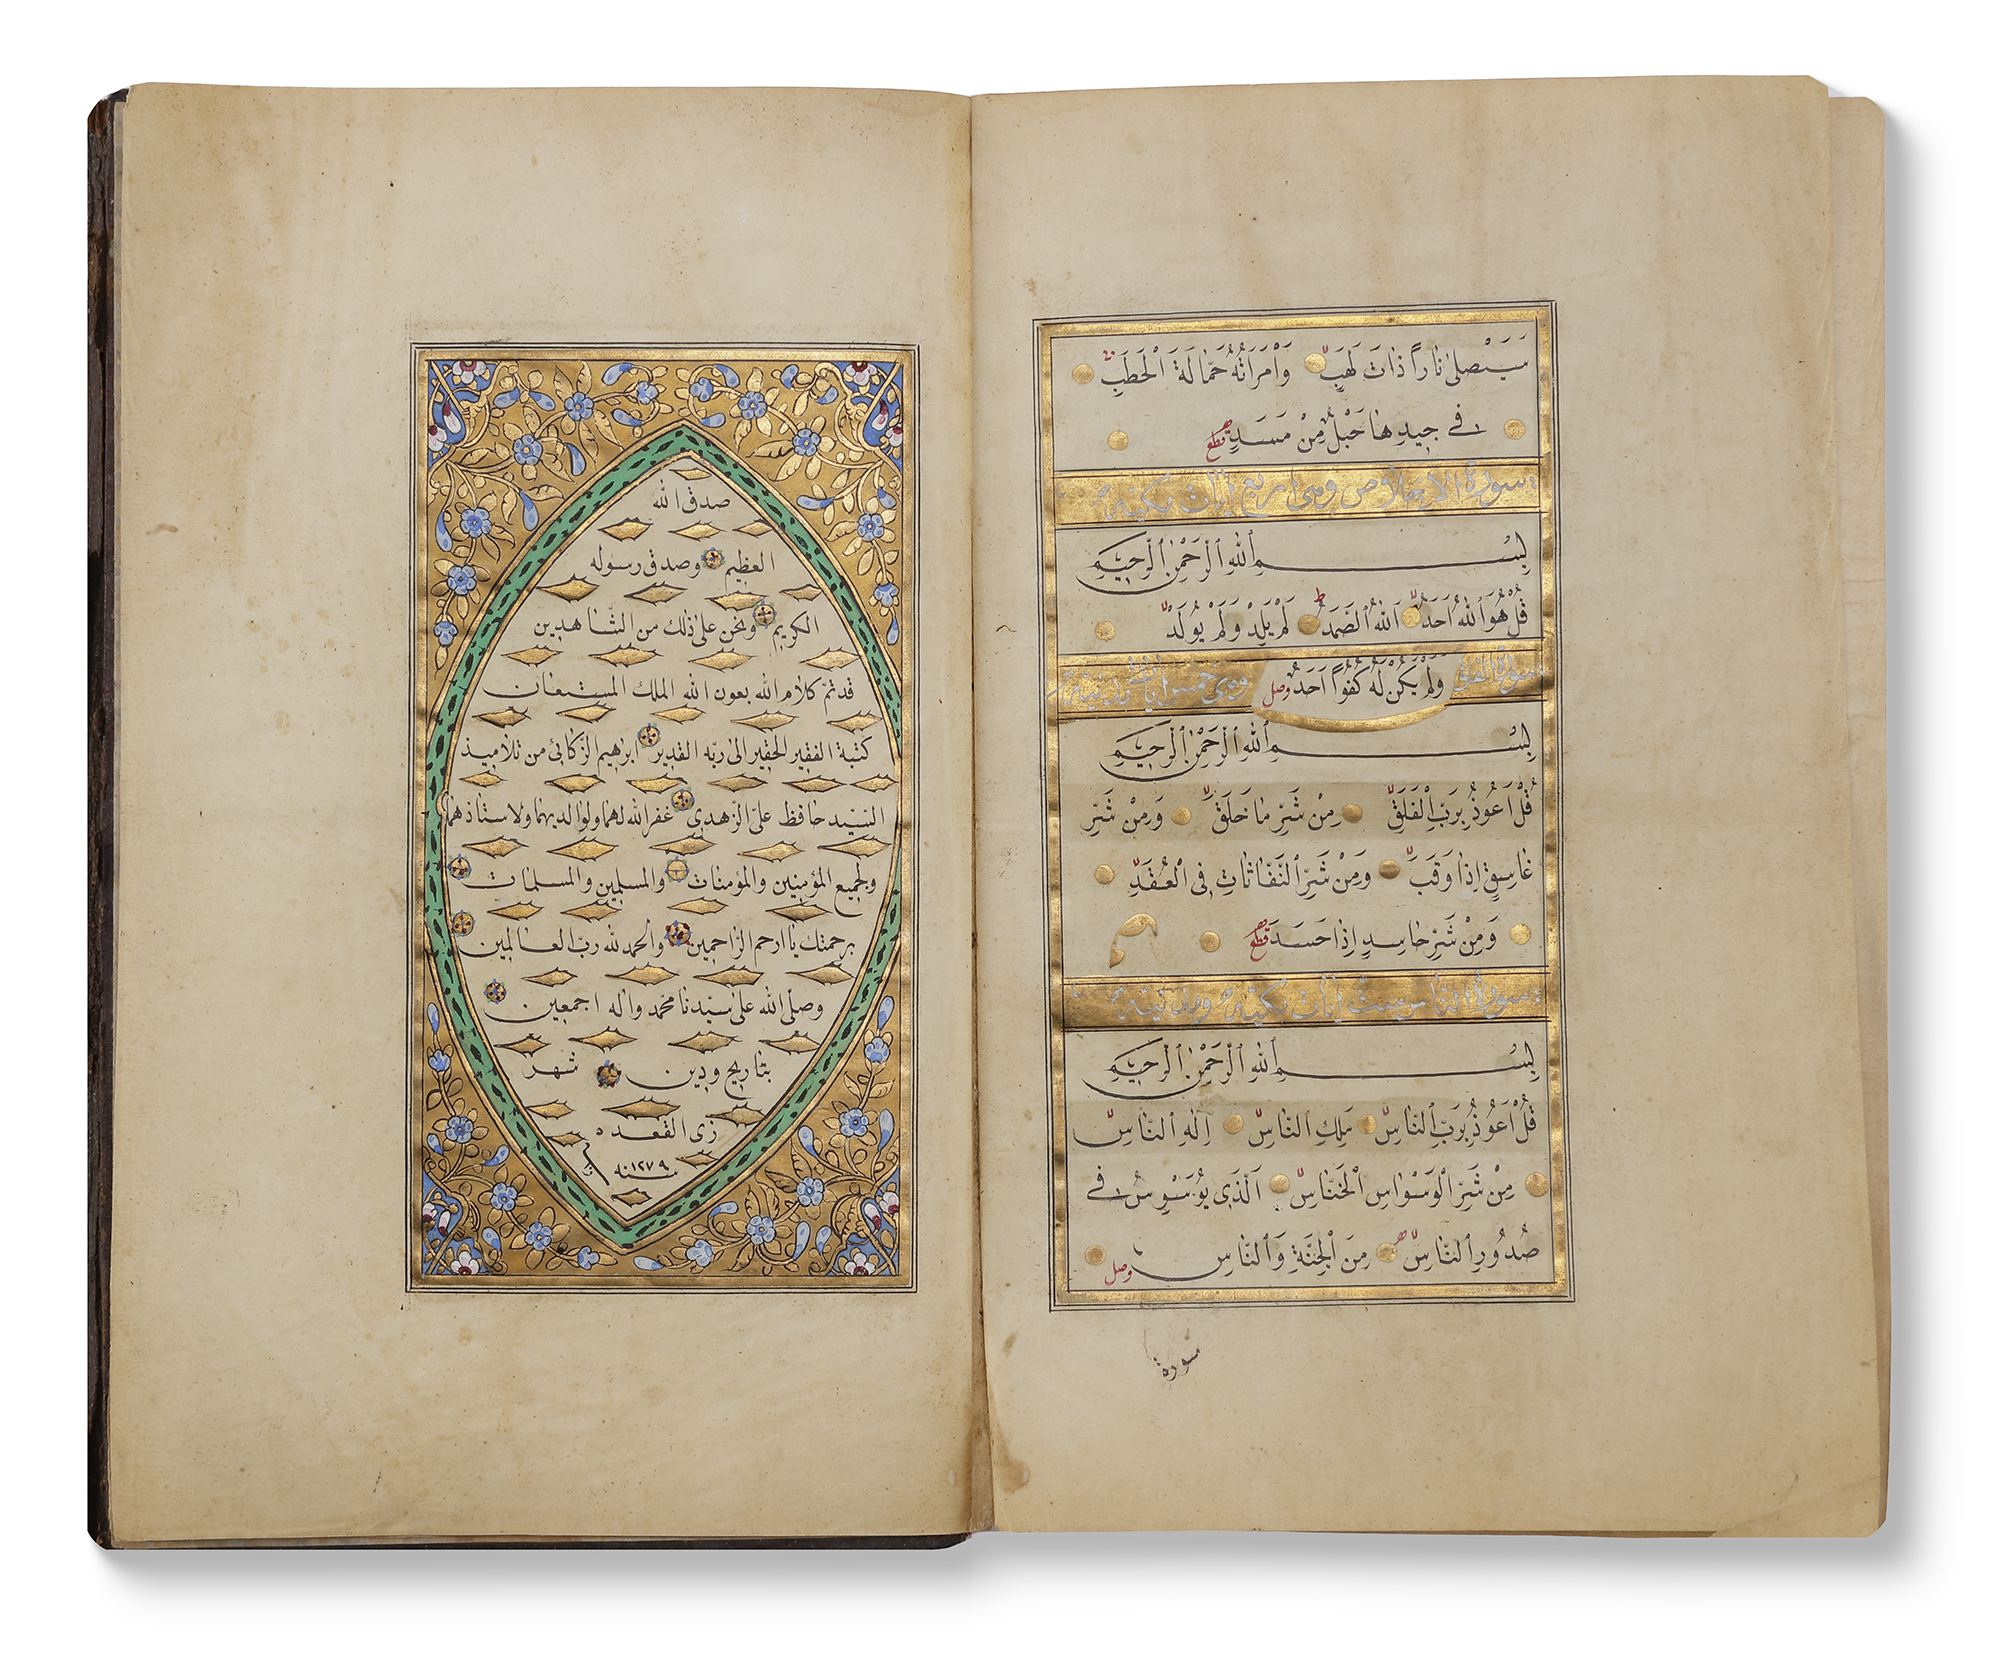 سَيَصْلٰى نَارًا ذَاتَ لَهَبٍ وَامْرَاَتُهُ حَمَّالَةَ الْحَطَبِ
فٖى جٖيدِهَا حَبْلٌ مِنْ مَسَدٍ قطع
سورة الاخلاص وهى اربع ايات مكية
بِسْمِ اللهِ الرَّحْمٰنِ الرَّحِيمِ
قُلْ هُوَ اللهُ اَحَدٌ اَللهُ الصَّمَدُ ط لَمْ يَلِدْ وَلَمْ يُولَدْ
وَلَمْ يَكُنْ لَهُ كُفُوًا اَحَدٌ وصل
سورة الفلق وهى خمس ايات مدنية
بِسْمِ اللهِ الرَّحْمٰنِ الرَّحِيمِ
قُلْ اَعُوذُ بِرَبِّ الْفَلَقِ مِنْ شَرِّ مَا خَلَقَ وَمِنْ شَرِّ
غَاسِقٍ اِذَا وَقَبَ وَمِنْ شَرِّ النَّفَّاثَاتِ فِى الْعُقَدِ
وَمِنْ شَرِّ حَاسِدٍ اِذَا حَسَدَ قطع
سورة الناس ست ايات مكية ومدنية
بِسْمِ اللهِ الرَّحْمٰنِ الرَّحِيمِ
قُلْ اَعُوذُ بِرَبِّ النَّاسِ مَلِكِ النَّاسِ اِلٰهِ النَّاسِ
مِنْ شَرِّ الْوَسْوَاسِ الْخَنَّاسِ اَلَّذٖى يُوَسْوِسُ فٖى
صُدُورِ النَّاسِ مِنَ الْجِنَّةِ وَالنَّاسِ وصل
سورة
صدق الله
العظيم وصدق رسوله
الكريم ونحن على ذلك من الشاهدين
قد تم كلام الله بعون الله الملك المستعان
كتبه الفقير الحقير الى ربه القدير ابراهيم الزكائى من تلاميذ
السيد حافظ على الزهدى غفر الله لهما ولوالديهما ولاستاذهما
ولجميع المؤمنين والمؤمنات والمسلمين والمسلمات
برحمتك يا ارحم الراحمين والحمد لله رب العالمين
وصلى الله على سيدنا محمد واله اجمعين
بتاريخ ودين شهر
زى القعده
سنه ١٢٧٩